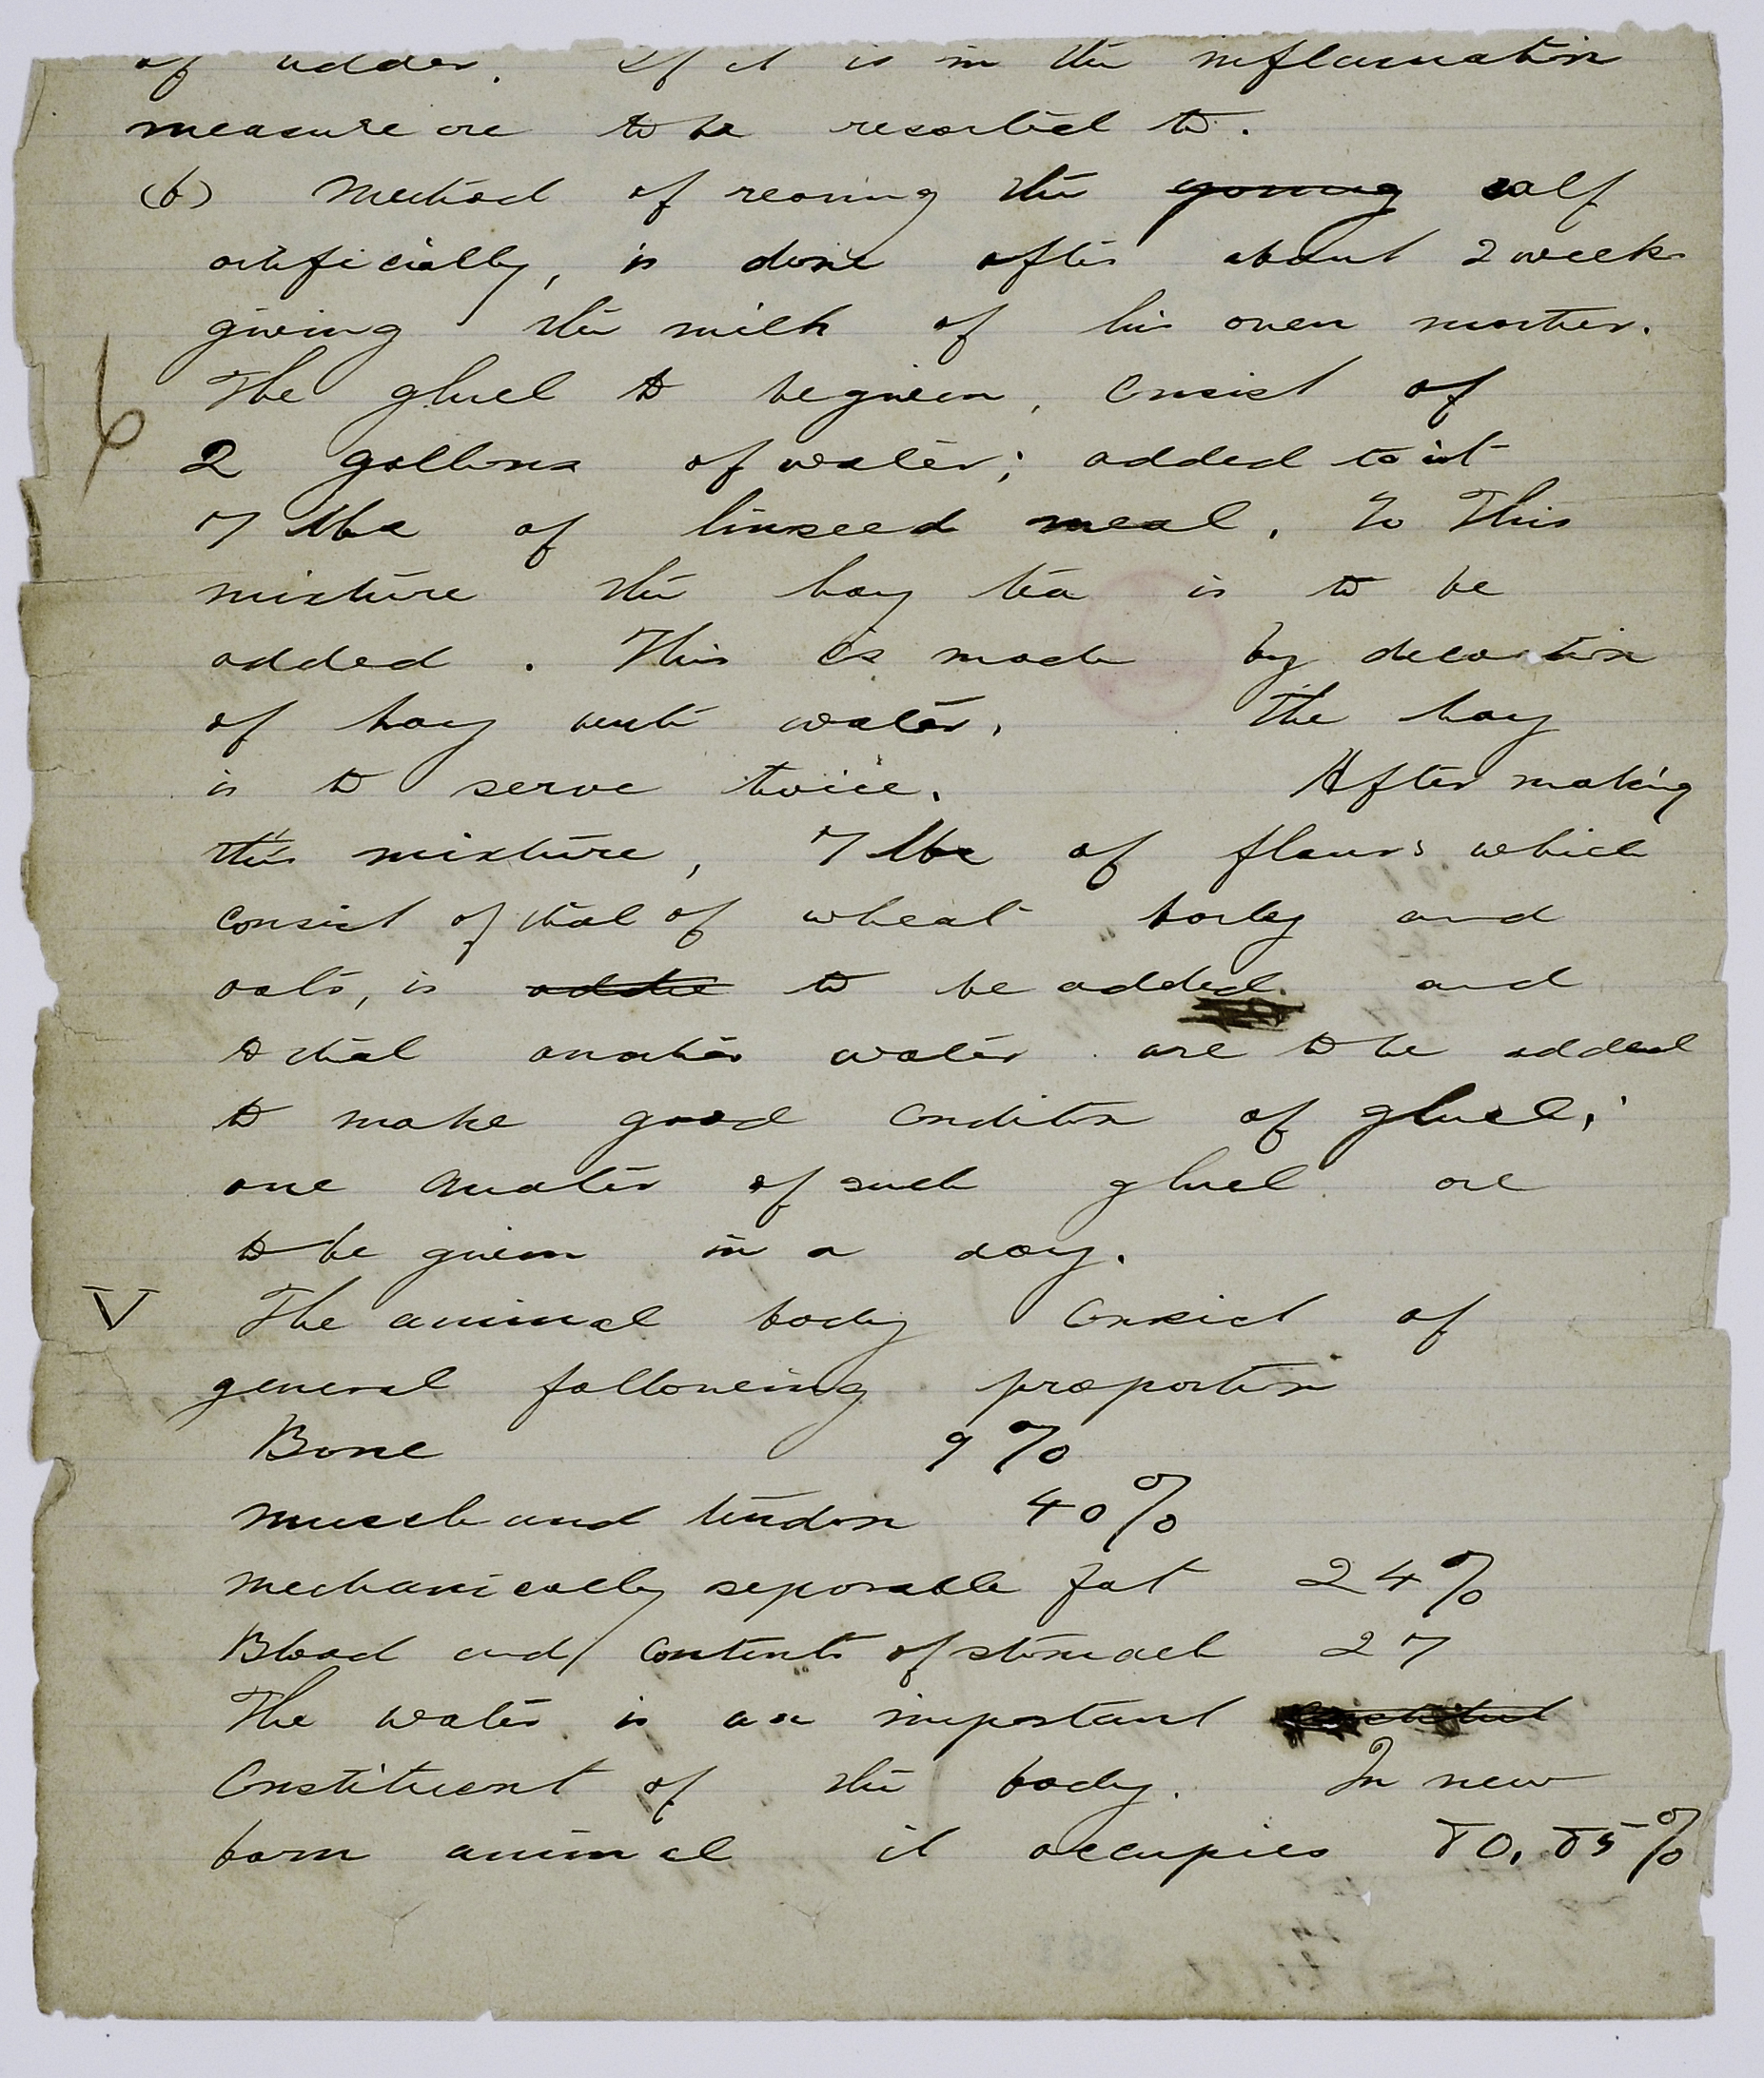 of udder. If it is in the inflamation
measure are to be resorted to.
(b) Method of rearing the young calf
artificially, is done after about 2 weeks
giving the milk of his own mother.
6
The gluel to be given, consist of
2 gallons of water; added to it
7 lbs of linseed meal. To This
mixture the hay tea is to be
added. This is made by decoction
of hay with water. The hay
is to serve twice. After making
this mixture, 7 lbs of flours which
consist of that of wheat barley and
oats, is added to be added. and
to that another water are to be added
to make good condition of gluel;
one quater of such gluel are
to be given in a day.
V The animal body consist of
general following proportion
Bone 9%
Muscle and tendon 40%
Mechanically separable fat 24%
Blood and contents of stomach 27
The water is an important
Constituent of the body. In new
born animal it occupies 80, 85%